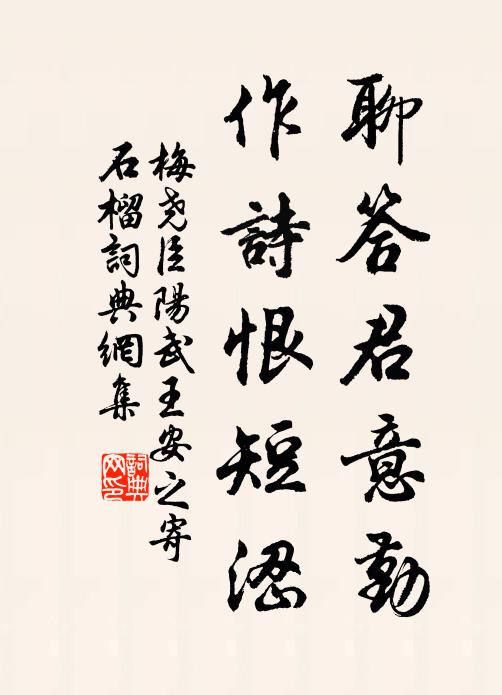 聊答君意勤
作詩恨短澀
梅尧臣陽武王安之寄
石榴詞典網集
詞典
网印